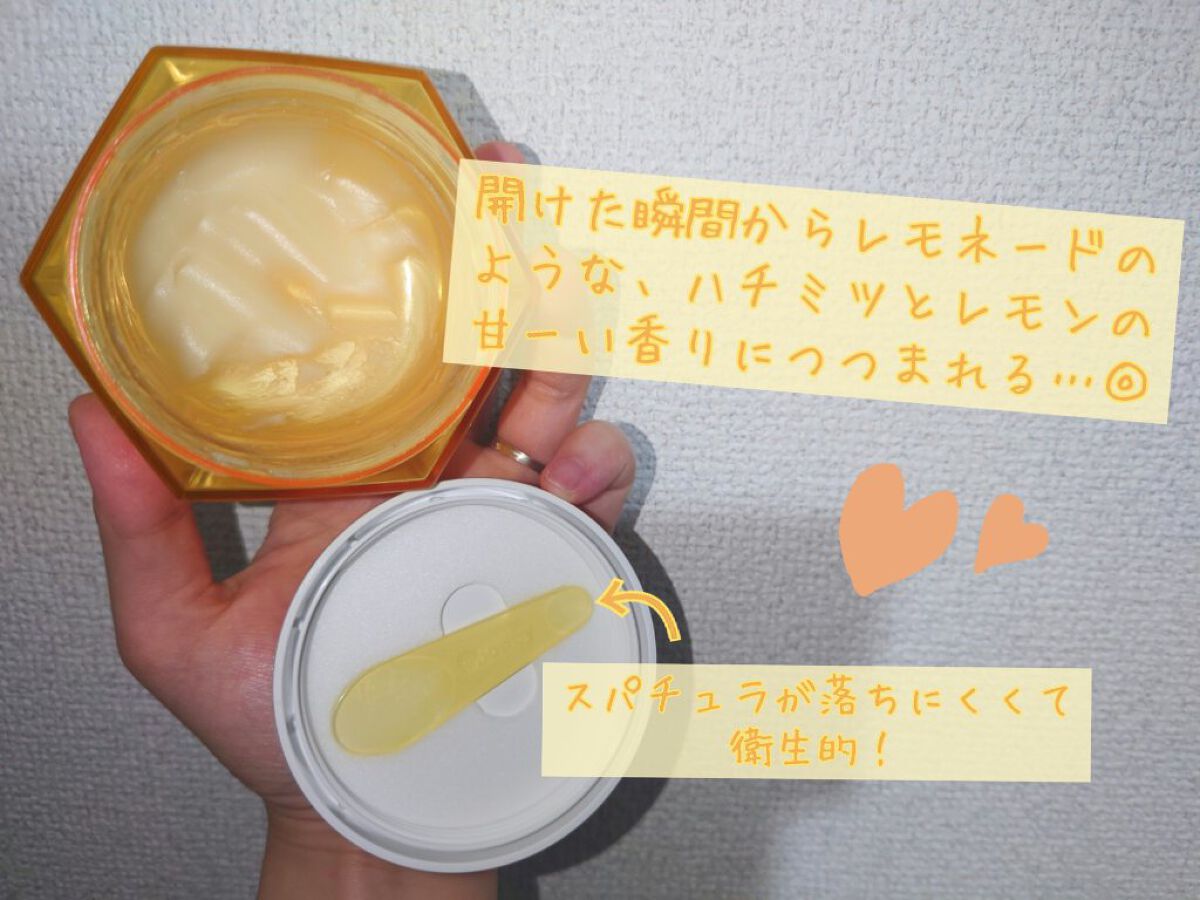 開けた瞬間からレモネードの
ような、ハチミツとレモンの
甘ーい香りにつつまれる…◎
スパチュラが落ちにくくて
衛生的！